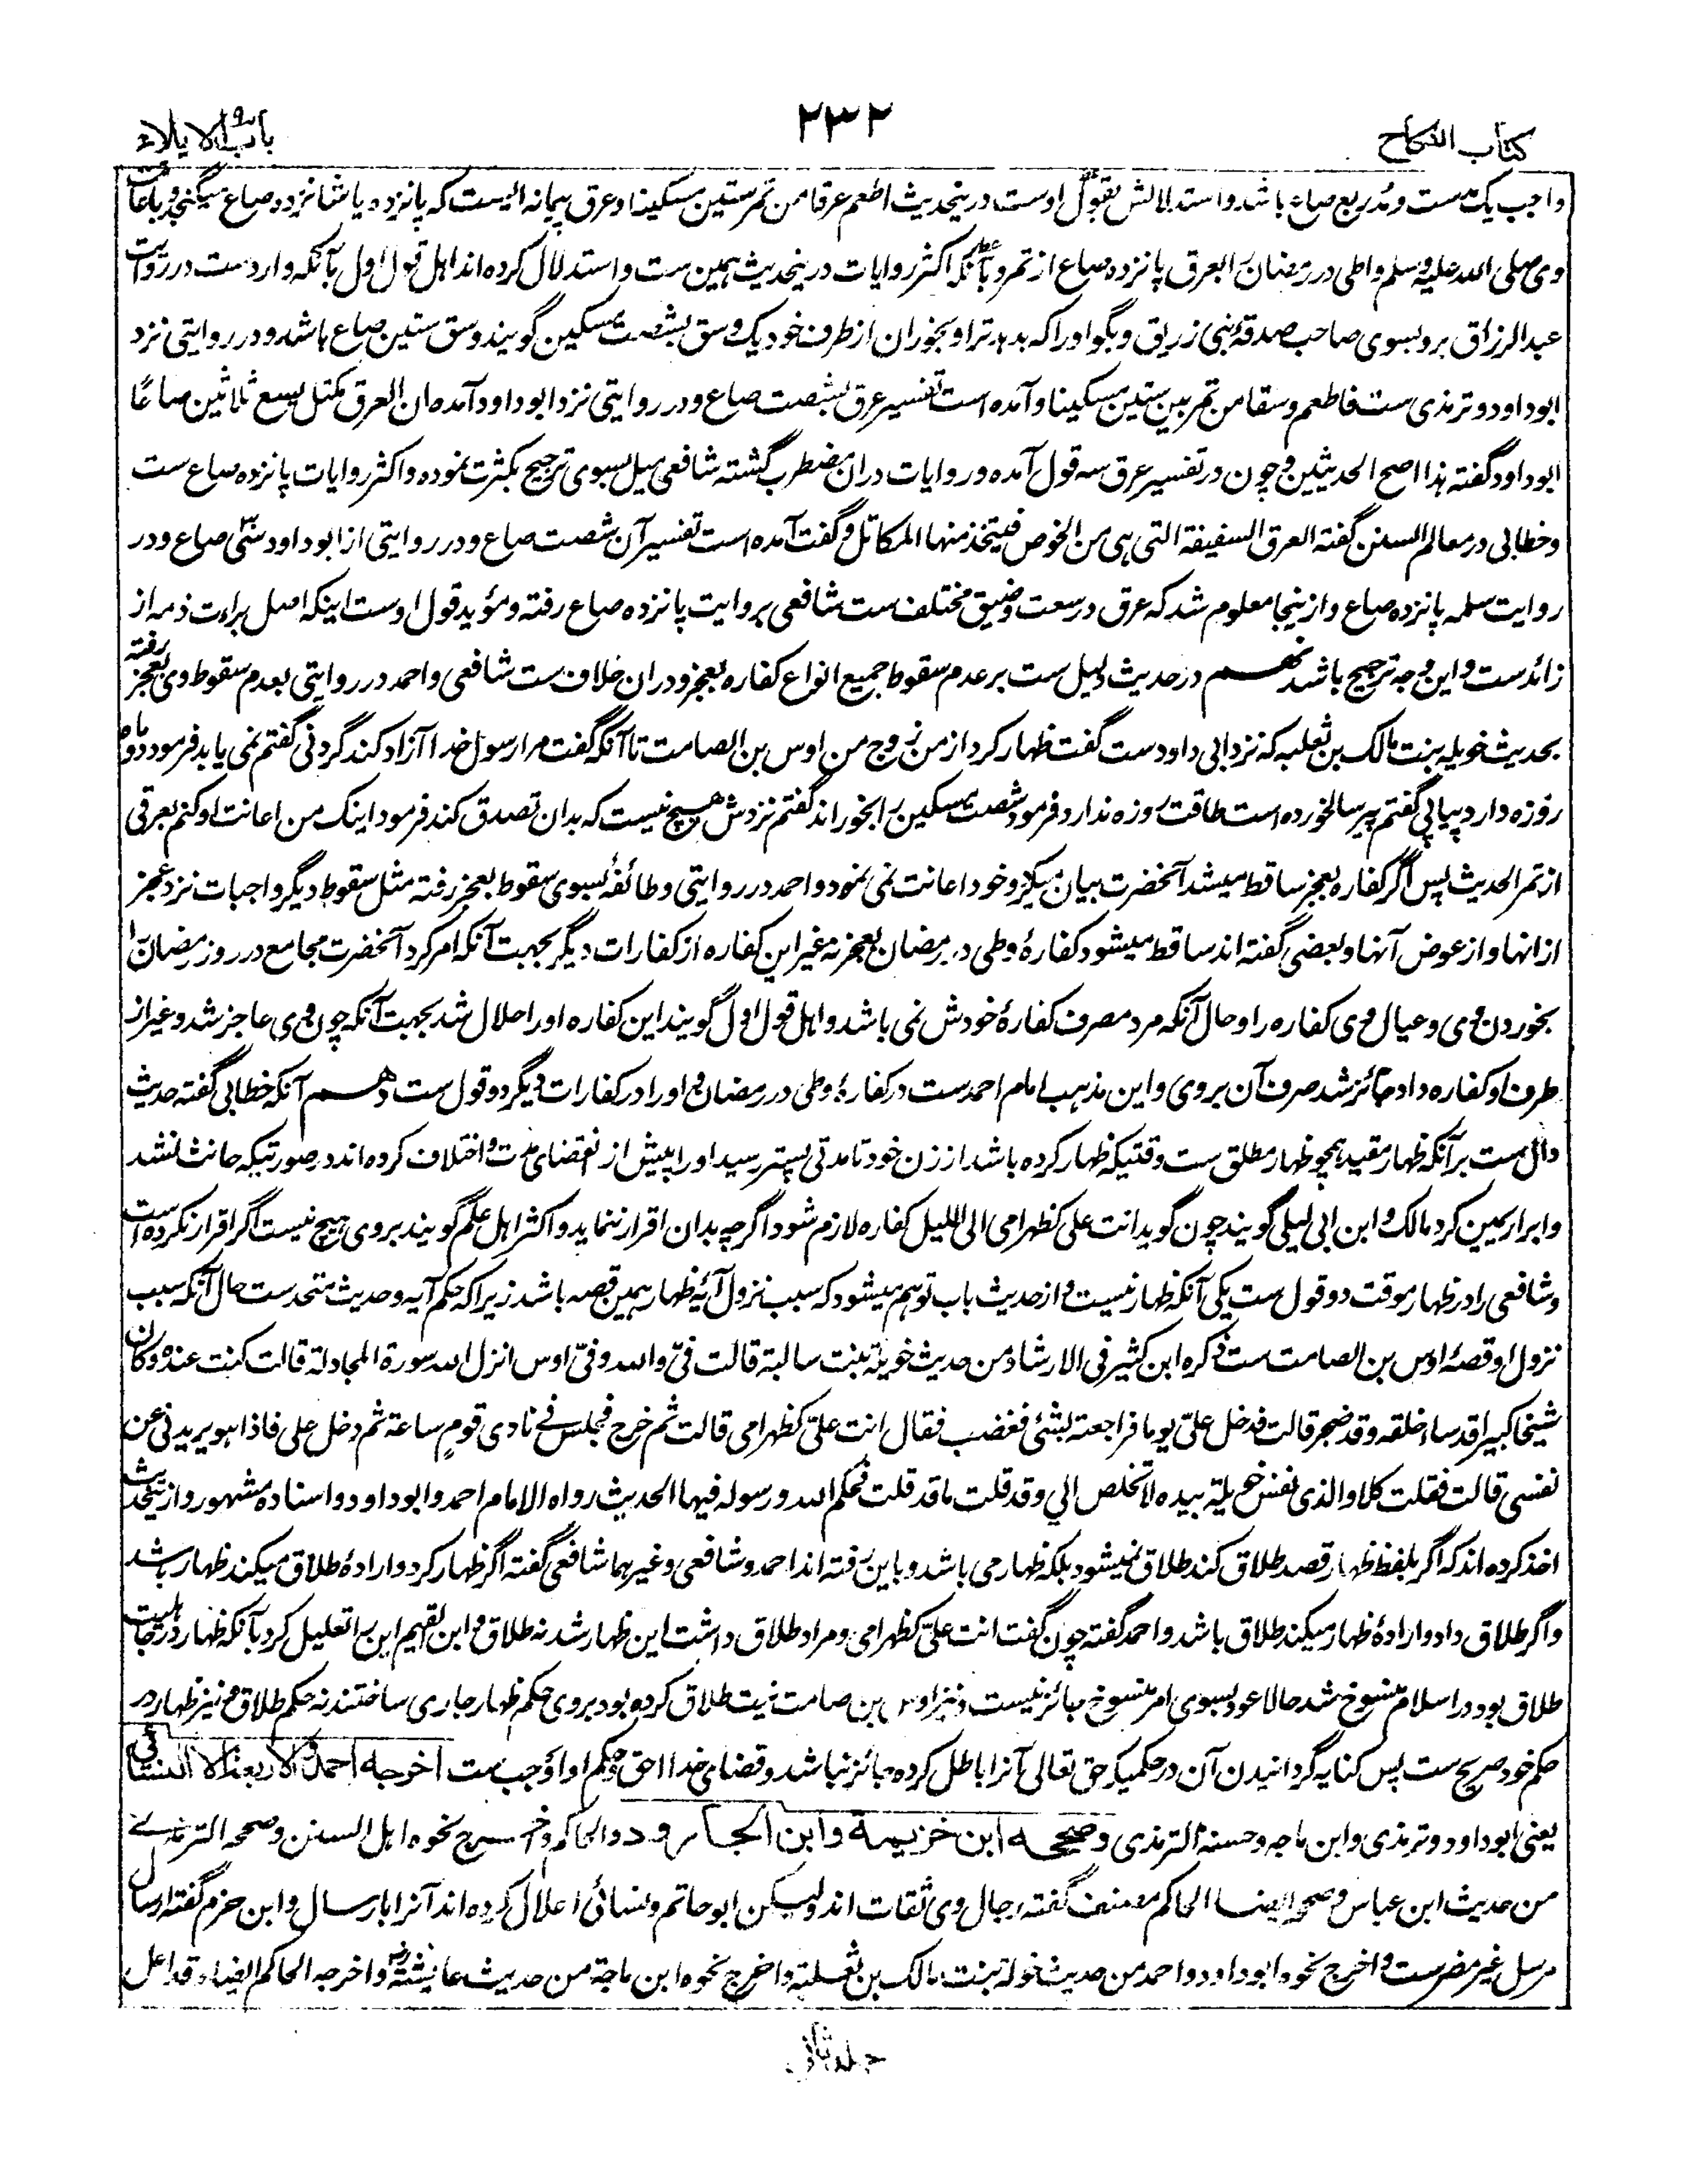 کتاب النکاح
۲۳۲
باب الایلاء
واجب یک مد ست و مُد ربع صاع باشد و استدلالش بقول اوست درینحدیث اطعم عرقا من تمر ستین مسکینا و عرق پیمانه ایست که پانزده یا شانزده صاع میگنجد و باعانت
وی صلی الله علیه وسلم واطی در رمضان را بعرق پانزده صاع از تمر و بآنکه اکثر روایات درینحدیث همین ست و استدلال کرده اند اهل قول اول بآنکه وارد ست در روایت
عبدالرزاق برو بسوی صاحب صدقهٔ بنی زریق و بگو اورا که بدهد ترا و بخوران از طرف خود یک وسق بشصت مسکین گویند وسق ستین صاع باشد و در روایتی نزد
ابوداود و ترمذی ست فاطعم وسقا من تمر بین ستین مسکینا و آمده است تفسیر عرق بشصت صاع و در روایتی نزد ابوداود آمده ان العرق مکتل یسع ثلاثین صاعًا
ابوداود گفته هذا اصح الحدیثین و چون در تفسیر عرق سه قول آمده و روایات دران مضطرب گشته شافعی میل بسوی ترجیح بکثرت نموده و اکثر روایات پانزده صاع ست
وخطابی در معالم السنن گفته العرق السفیفة التی هی من الخوص فیتخذ منها المکاتل و گفت آمده است تفسیر آن شصت صاع و در روایتی از ابوداود سی صاع و در
روایت سلمه پانزده صاع و ازینجا معلوم شد که عرق در سعت و ضیق مختلف ست شافعی بروایت پانزده صاع رفته و مؤید قول اوست اینکه اصل براءت ذمه از
زائد ست و این وجه ترجیح باشد نهم در حدیث دلیل ست بر عدم سقوط جمیع انواع کفاره بعجز و دران خلاف ست شافعی و احمد در روایتی بعدم سقوط وی بعجز رفته
بحدیث خویله بنت مالک بن ثعلبه که نزد ابی داود ست گفت ظهار کرد از من زوج من اوس بن الصامت تا آنکه گفت مرا رسول خدا آزاد کند گردنی گفتم نمی یابد فرمود دو ماه
روزه دارد پیاپی گفتم پیر سالخورده است طاقت روزه ندارد فرمود شصت مسکین را بخوراند گفتم نزدش هیچ نیست که بدان تصدق کند فرمود اینک من اعانت او کنم بعرقی
از تمر الحدیث پس اگر کفاره بعجز ساقط میشد آنحضرت بیان میکرد و خود اعانت نمی نمود و احمد در روایتی و طائفهٔ بسوی سقوط بعجز رفته مثل سقوط دیگر واجبات نزد عجز
ازانها و از عوض آنها و بعضی گفته اند ساقط میشود کفارهٔ وطی در رمضان بعجز نه غیر این کفاره از کفارات دیگر بجهت آنکه امر کرد آنحضرت مجامع در روز رمضان را
بخوردن وی و عیال وی کفاره را و حال آنکه مرد مصرف کفارهٔ خودش نمی باشد و اهل قول اول گویند این کفاره اورا حلال شد بجهت آنکه چون وی عاجز شد و غیر از
طرف او کفاره داد جائز شد صرف آن بروی و این مذهب امام احمد ست در کفارهٔ وطی در رمضان و اورا در کفارات دیگر دو قول ست دهم آنکه خطابی گفته حدیث
دال ست بر آنکه ظهار مقید همچو ظهار مطلق ست وقتیکه ظهار کرده باشد از زن خود تا مدتی پستر رسید اورا پیش از انقضای مدت و اختلاف کرده اند در صورتیکه حانث نشد
وابرار یمین کرد مالک و ابن ابی لیلی گویند چون گوید انت علی کظهر امی الی اللیل کفاره لازم شود اگرچه بدان اقرار ننماید و اکثر اهل علم گویند بروی هیچ نیست اگر اقرار نکرده است
وشافعی را در ظهار موقت دو قول ست یکی آنکه ظهار نیست و از حدیث باب توهم میشود که سبب نزول آیهٔ ظهار همین قصه باشد زیرا که حکم آیه و حدیث متحد ست حال آنکه سبب
نزول او قصهٔ اوس بن الصامت ست ذکره ابن کثیر فی الارشاد من حدیث خویلة بنت سالبة قالت فیّ والله و فی اوس انزل الله سورة المجادلة قالت کنت عنده وکان
شیخا کبیرا قد ساء خلقه و قد ضجر قالت فدخل علیّ یوما فراجعته بشئ فغضب فقال انت علیّ کظهر امی قالت ثم خرج فجلس فی نادی قومٍ ساعة ثم دخل علی فاذا هو یریدنی عن
نفسی قالت فقلت کلا والذی نفس خویلة بیده لا تخلص الی وقد قلت ما قد قلت فحکم الله ورسوله فیها الحدیث رواه الامام احمد و ابوداود و اسناده مشهور و ازینحدیث
اخذ کرده اند که اگر بلفظ ظهار قصد طلاق کند طلاق نمیشود بلکه ظهار می باشد و باین رفته اند احمد و شافعی و غیرهما شافعی گفته اگر ظهار کرد و ارادهٔ طلاق میکند ظهار باشد
واگر طلاق داد و ارادهٔ ظهار میکند طلاق باشد و احمد گفته چون گفت انت علیّ کظهر امی و مراد طلاق داشت این ظهار شد نه طلاق و ابن القیم این را تعلیل کرد بآنکه ظهار در جاهلیت
طلاق بود در اسلام منسوخ شد حالا عود بسوی امر منسوخ جائز نیست و نیز اوس بن صامت نیت طلاق کرده بود بروی حکم ظهار جاری ساختند نه حکم طلاق و نیز ظهار در
حکم خود صریح ست پس کنایه گردانیدن آن در حکمیکه حق تعالی آنرا باطل کرده جائز نباشد و قضای خدا احق و حکم او اوجب ست اخرجه احمد والاربعة الا النسائی
یعنی ابوداود و ترمذی و ابن ماجه و حسنه الترمذی وصححه ابن خزیمة وابن الجارود والحاکم واخرج نحوه اهل السنن وصححه الترمذی
من حدیث ابن عباس وصححه ایضا الحاکم مصنف گفته رجال وی ثقات اند ولیکن ابوحاتم و نسائی اعلال کرده اند آنرا بارسال و ابن حزم گفته ارسال
مرسل غیر مضر ست واخرج نحوه ابوداود واحمد من حدیث خولة بنت مالک بن ثعلبة واخرج نحوه ابن ماجة من حدیث عایشة واخرجه الحاکم ایضا وقد اعل
جلد ثانی